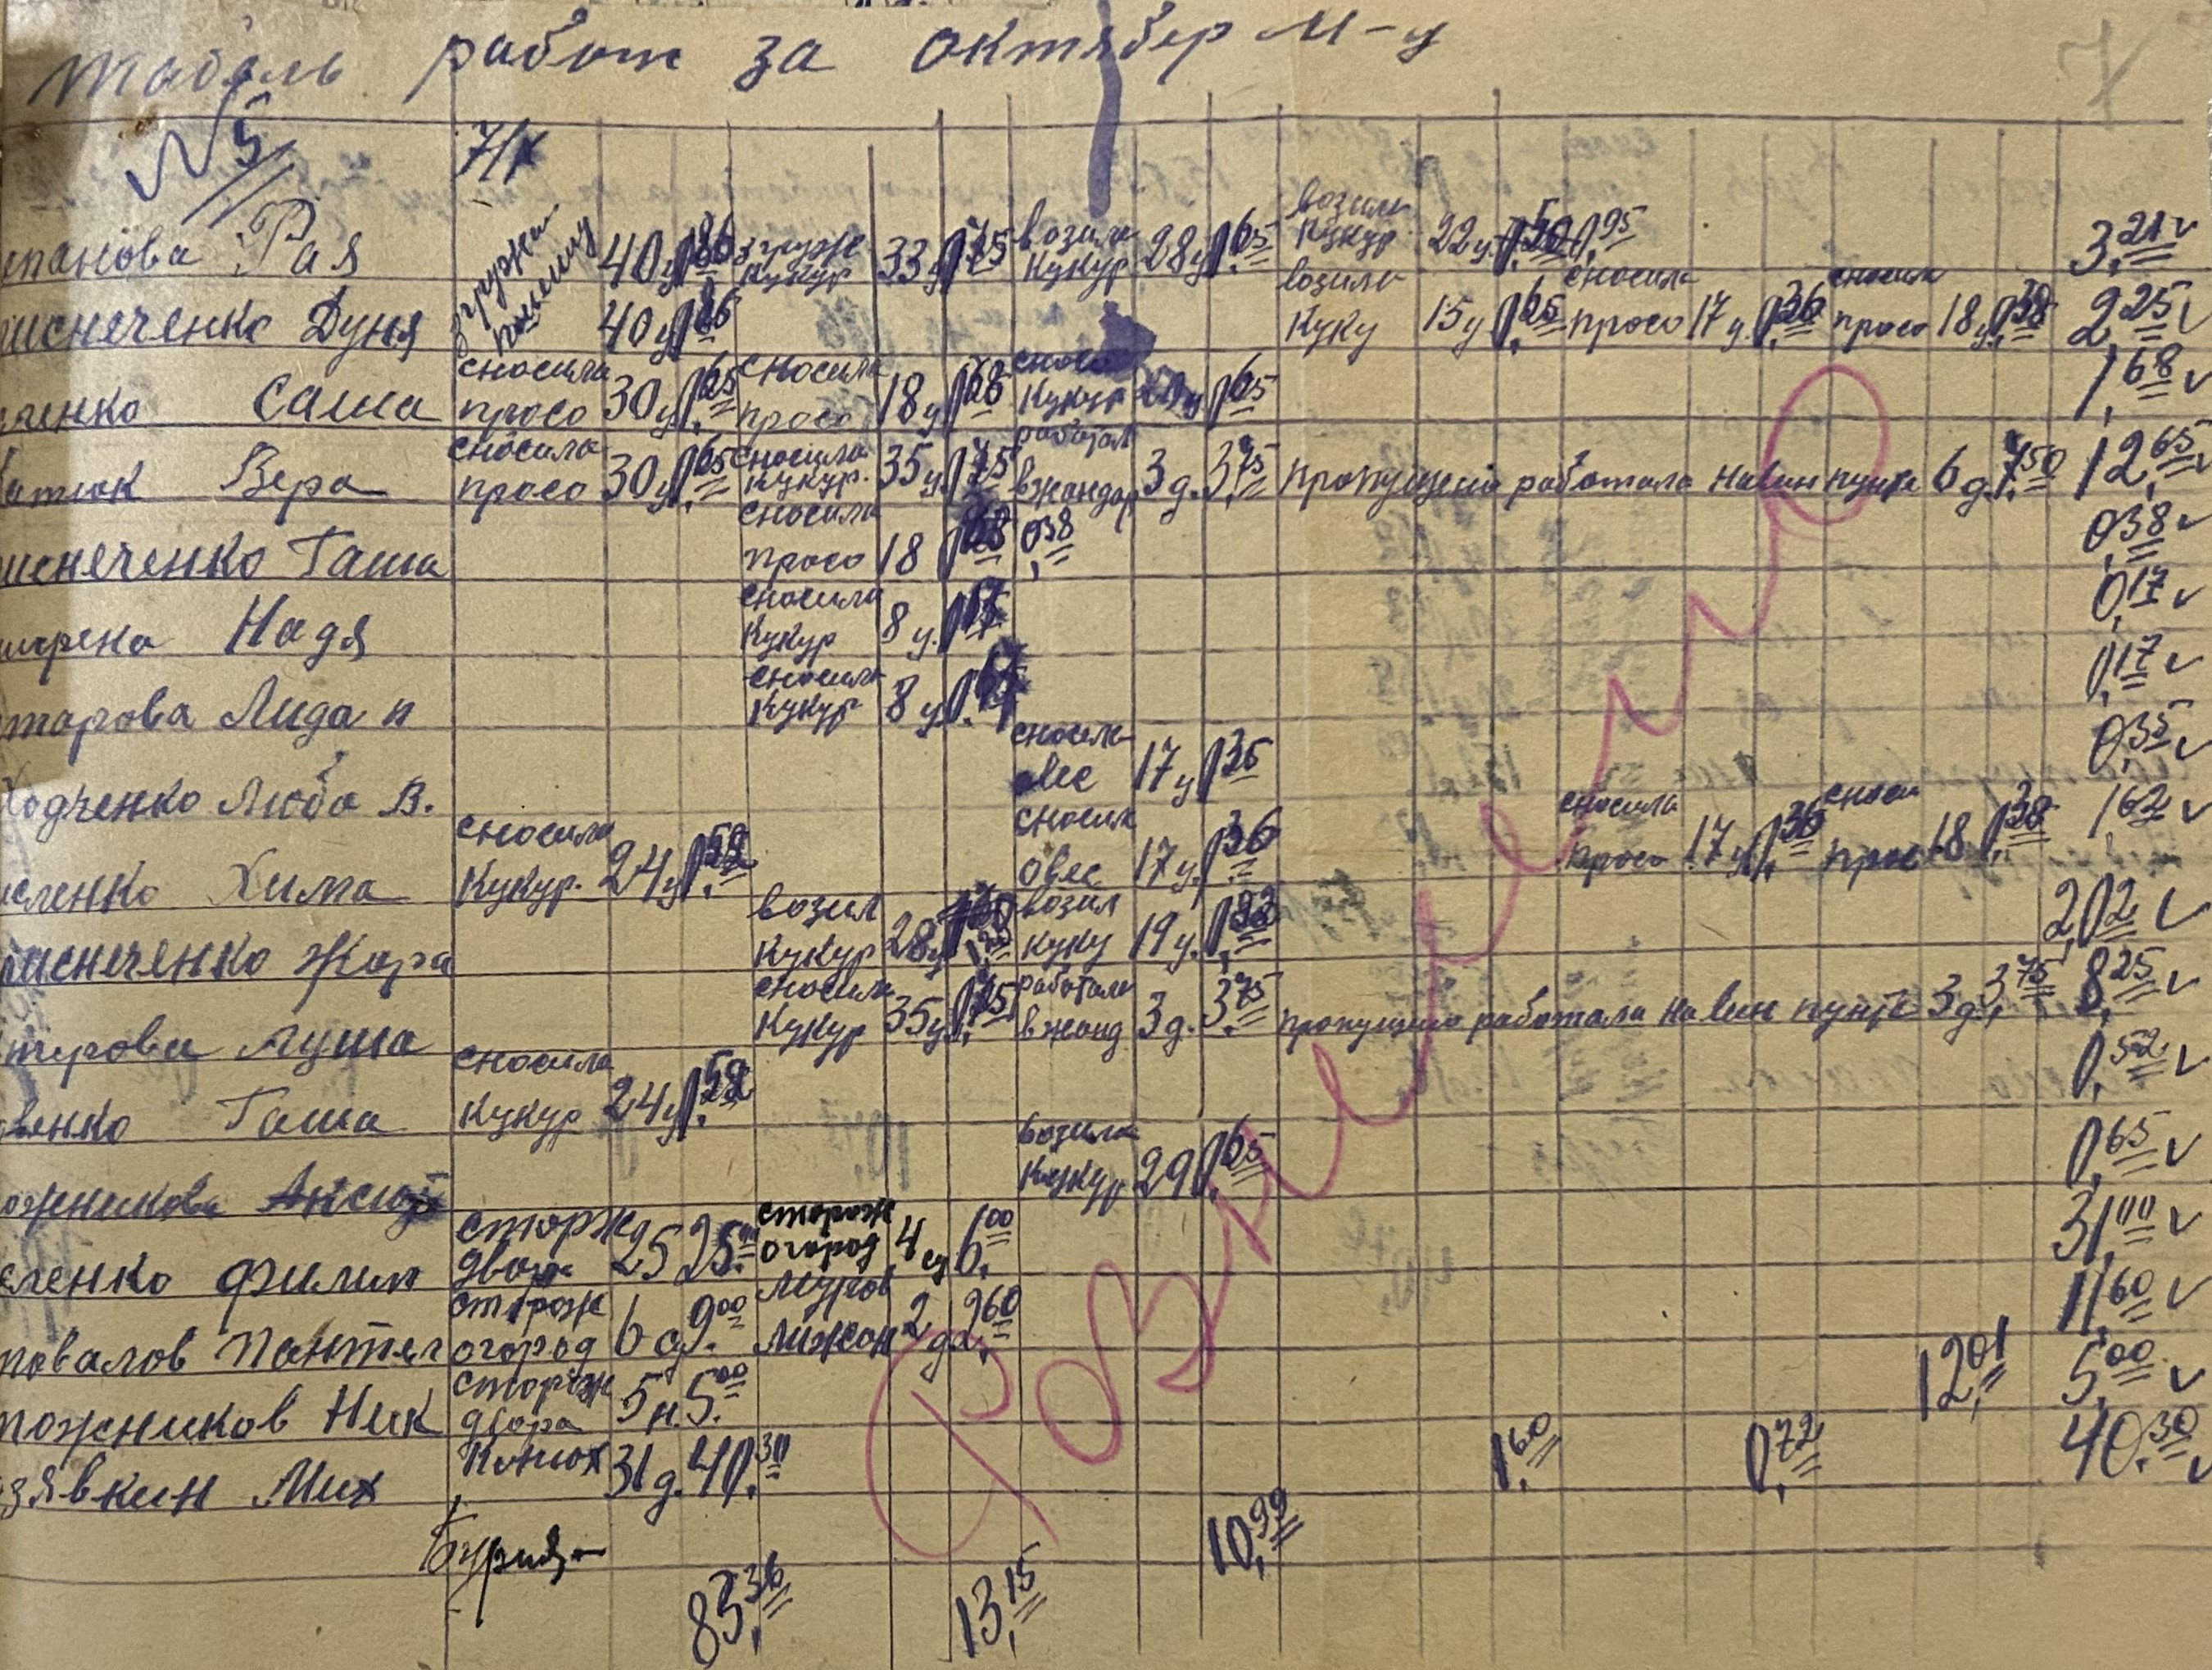 табель работ за октябер м-ц
№5
7/X
епанова Рая згружали пшеницу 40 ц 0,86 згружа кукур 33 ц 0,75 возила кукур 28 ц 0,65 возила кукур 22 ц 0,50 0,95 3,21 v
иснеченко Дуня 40 ц 0,86 возила куку 15 ц 0,65 сносила просо 17 ц. 0,36 сносил просо 18 ц 0,38 2,25 v
ченко Саша сносила просо 30 ц 0,65 сносила просо 18 ц 0,38 сноси кукур 0,65 1,68 v
атюк Вера сносила просо 30 ц 0,65 сносила кукур. 35 ц 0,75 работал в жандар 3 д. 3,75 пропущено работала на вин пункт 6 д 7,50 12,65 v
иснеченко Гаша сносила просо 18 0,38 0,38 0,38 v
Надя сносила кукур 8 ц. 0,17 0,17 v
тарова Лида п сносила кукур 8 ц 0,17 0,17 v
Ходченко Люба В. сносила овес 17 ц 0,35 0,35 v
сленко Хима сносила кукур. 24 ц 0,52 сносил овес 17 ц. 0,36 сносила просо 17 ц 0,36 сноси прос 18 0,38 1,62 v
иснеченко Жора возил кукур 28 ц 1,20 возил куку 19 ц. 0,82 2,02 v
Луша сносила кукур 35 ц 0,75 работала в жанд 3 д. 3,75 пропущено работала на вин пункт 3 д 3,75 8,25 v
венко Гаша сносила кукур 24 ц 0,52 0,52 v
ожникова возила кукур 29 0,65 0,65 v
ленко Филип сторж двора 25 25,00 сторож огород 4 су 6,00 31,00 v
повалов Пантел сторож огород 6 су 9,00 2 д 2,60 11,60 v
пожников Ник сторож двора 5 н. 5,00 12,01 5,00 v
зявкин Мих конюх 31 д. 40,30 1,60 0,72 40,30 v
10,99
83,36 13,15
Разнесено